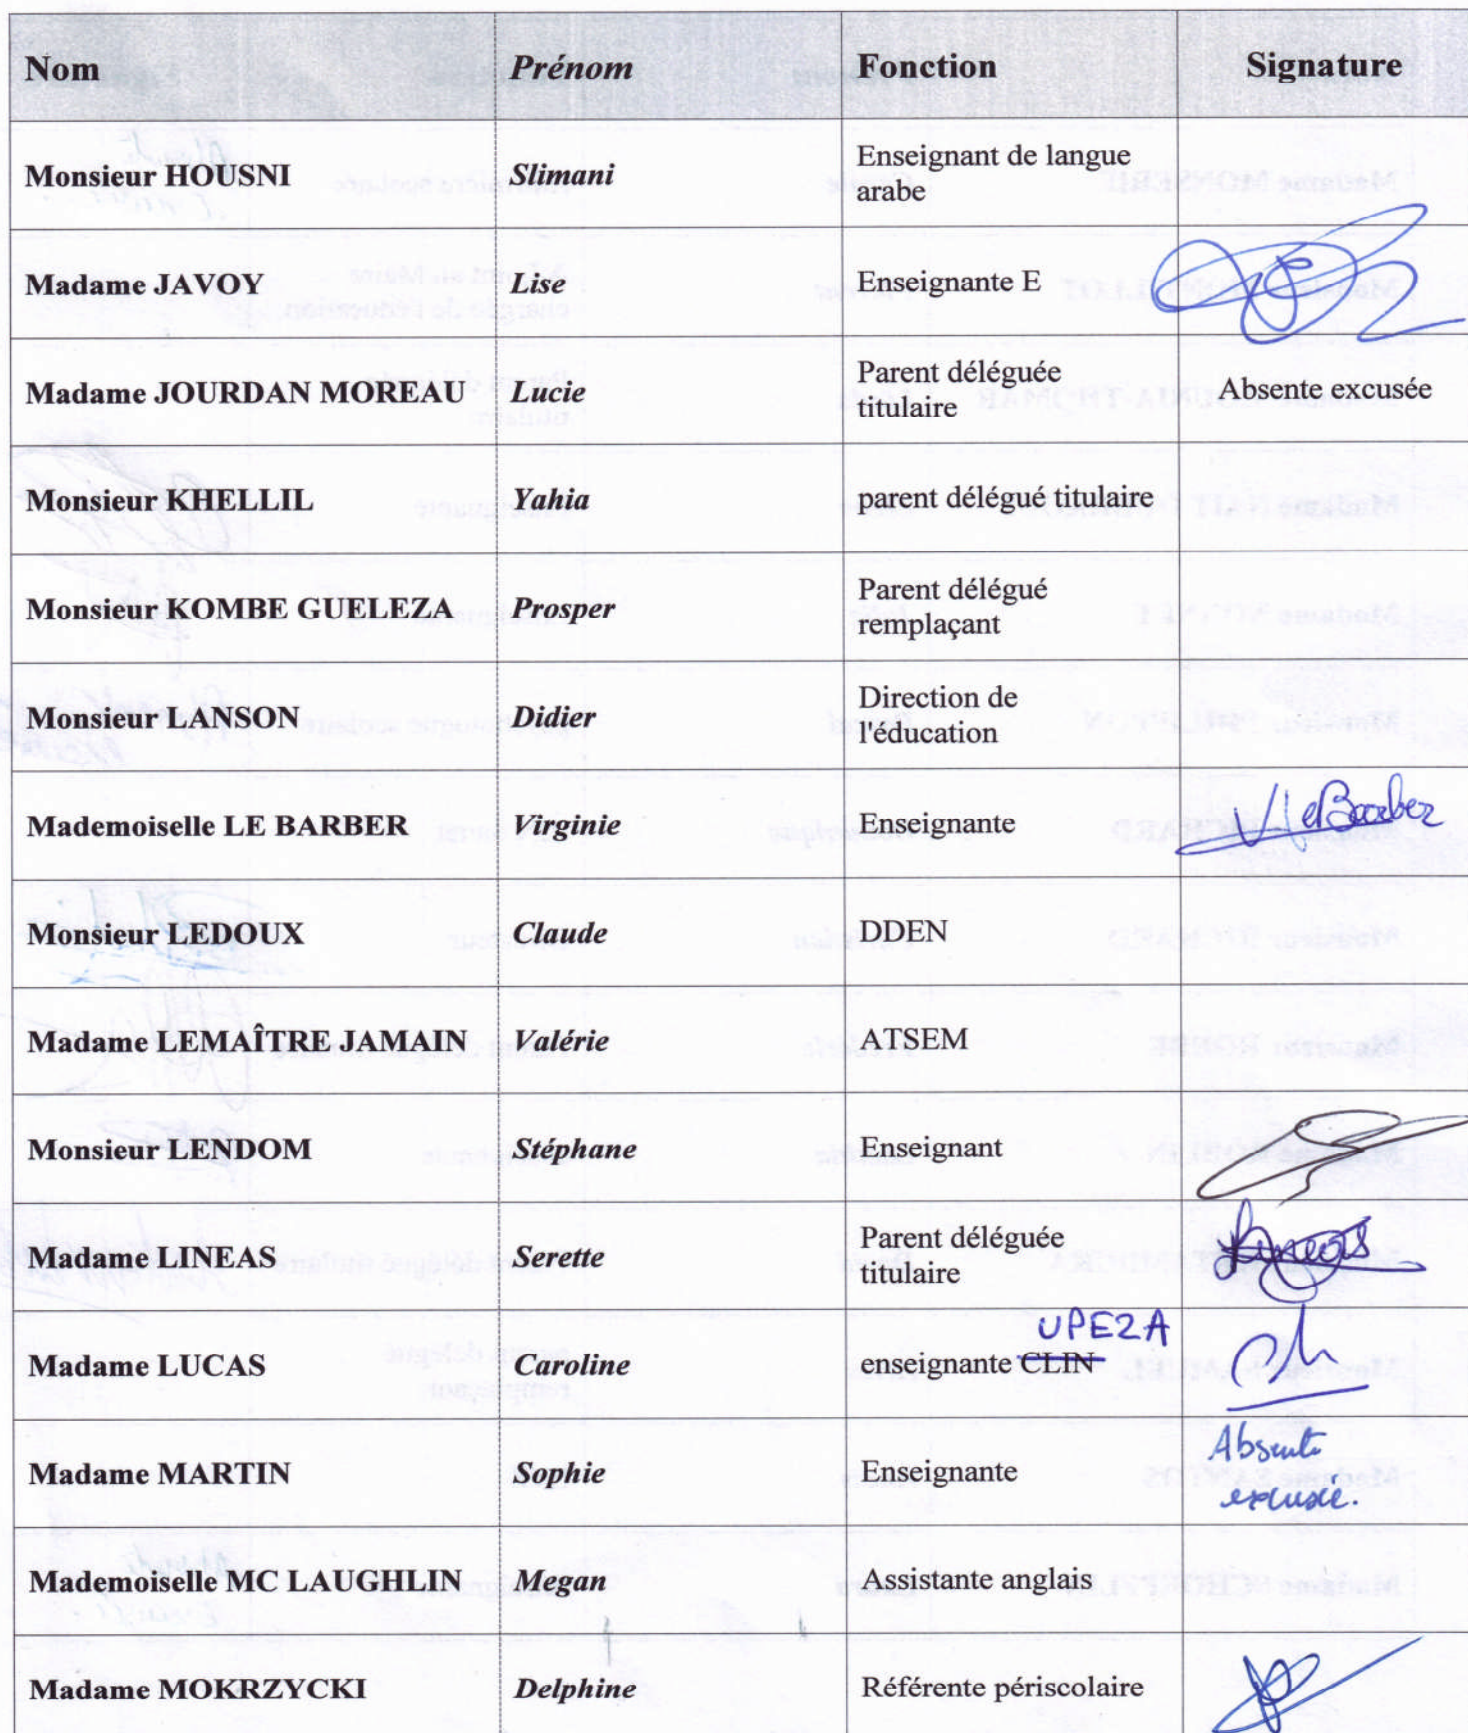 Nom Prénom Fonction Signature
Monsieur HOUSNI Slimani Enseignant de langue
arabe
Madame JAVOY Lise Enseignante E
Madame JOURDAN MOREAU Lucie Parent déléguée
titulaire Absente excusée
Monsieur KHELLIL Yahia parent délégué titulaire
Monsieur KOMBE GUELEZA Prosper Parent délégué
remplaçant
Monsieur LANSON Didier Direction de
l'éducation
Mademoiselle LE BARBER Virginie Enseignante V LeBarber
Monsieur LEDOUX Claude DDEN
Madame LEMAÎTRE JAMAIN Valérie ATSEM
Monsieur LENDOM Stéphane Enseignant
Madame LINEAS Serette Parent déléguée
titulaire
UPE2A
Madame LUCAS Caroline enseignante CLIN
Madame MARTIN Sophie Enseignante Absente
excusée.
Mademoiselle MC LAUGHLIN Megan Assistante anglais
Madame MOKRZYCKI Delphine Référente périscolaire